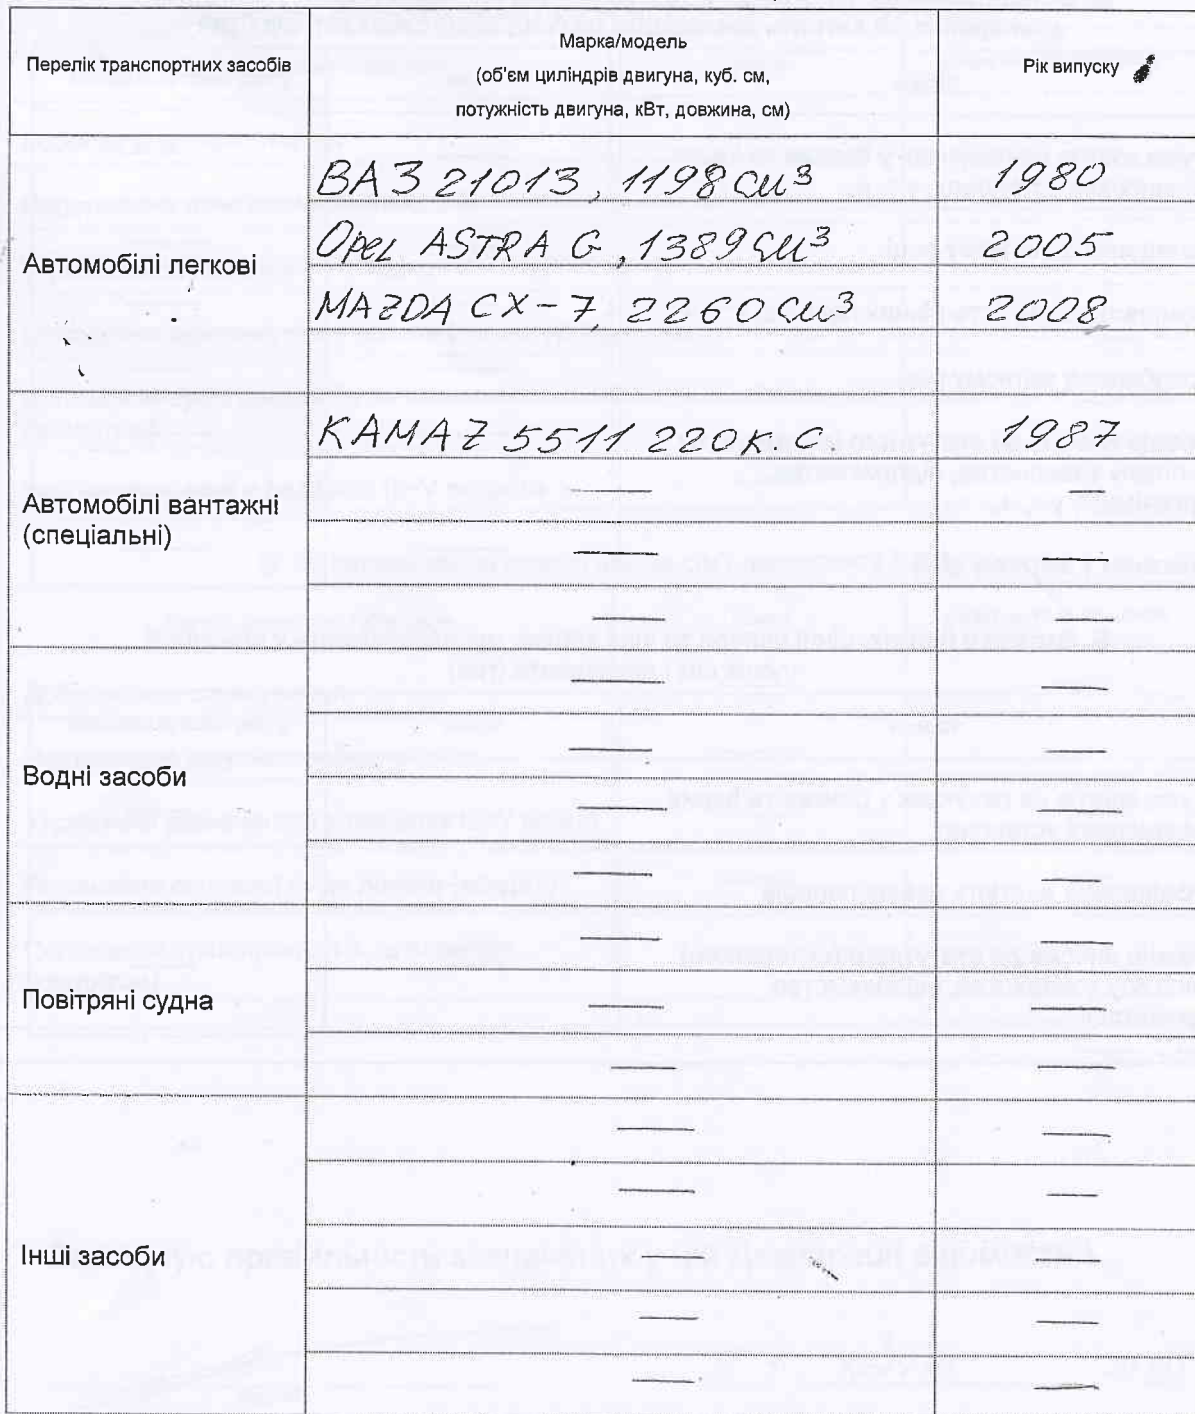 Перелік транспортних засобів
Марка/модель
(об'єм циліндрів двигуна, куб. см,
потужність двигуна, кВт, довжина, см)
Рік випуску
Автомобілі легкові
ВАЗ 21013, 1198 см³ 1980
Opel ASTRA G, 1389 см³ 2005
MAZDA CX-7, 2260 см³ 2008
Автомобілі вантажні
(спеціальні)
KAMAZ 5511 220 к.с. 1987
— —
— —
— —
Водні засоби
— —
— —
— —
— —
Повітряні судна
— —
— —
— —
Інші засоби
— —
— —
— —
— —
— —